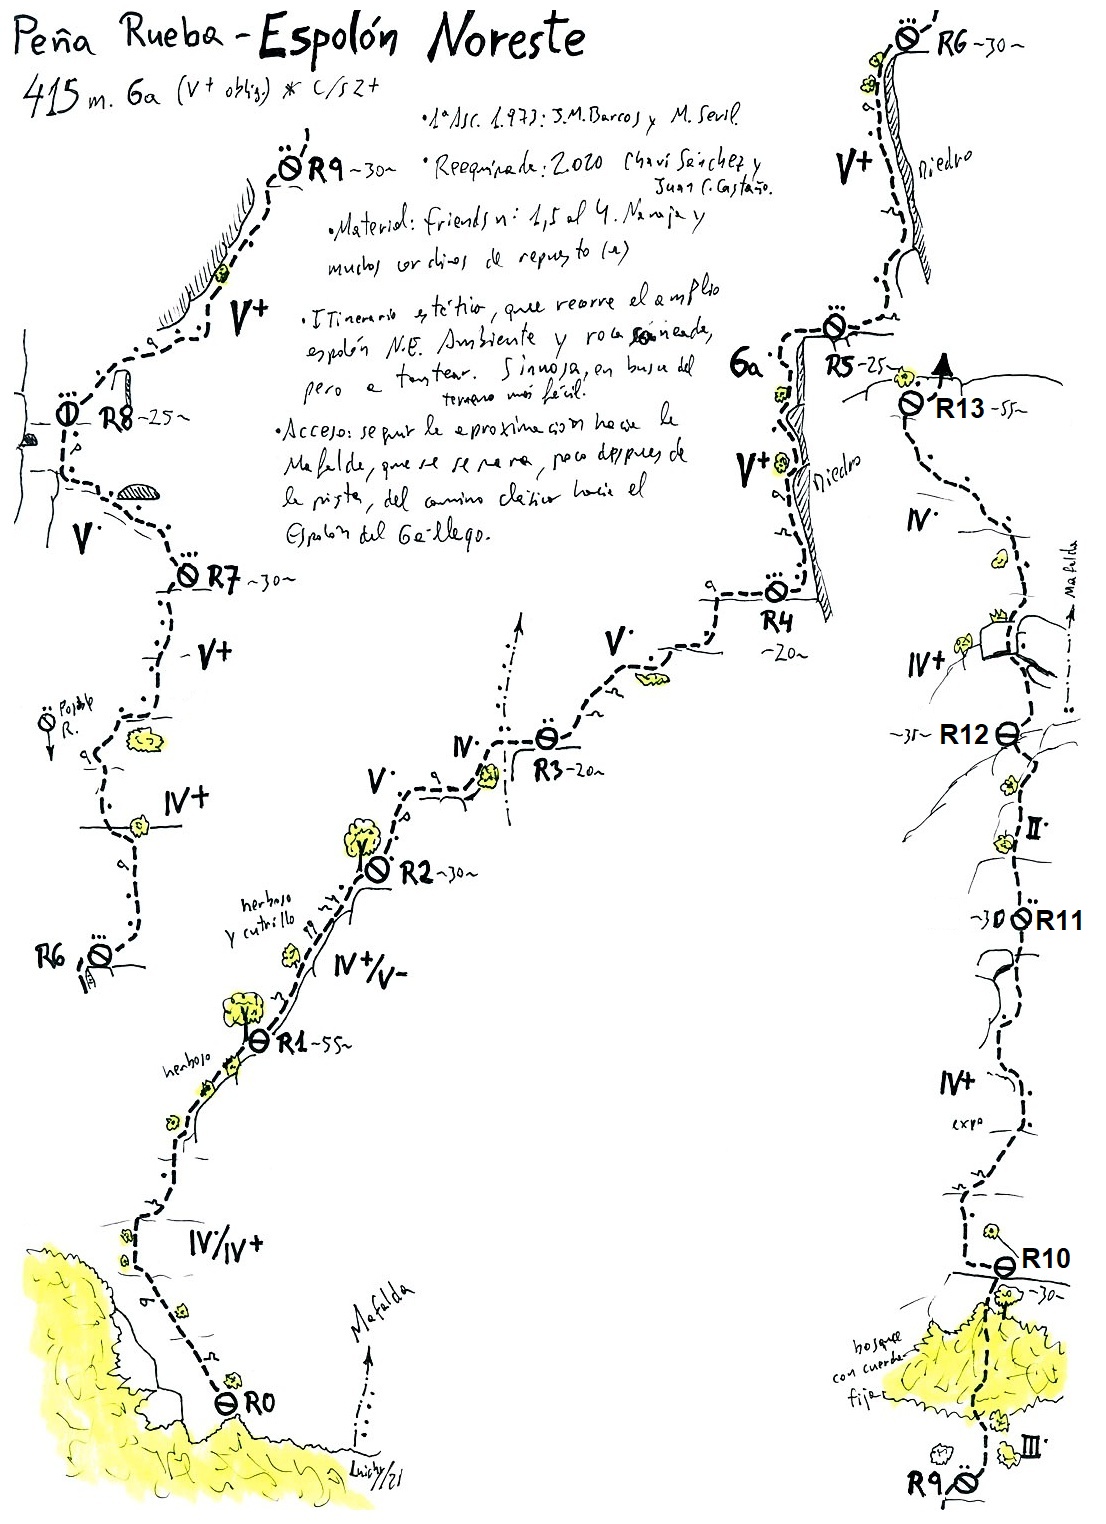 Peña Rueba - Espolón Noreste
415 m. 6a (V+ oblig.) * C/S2+
• 1ª Asc. 1.973: J.M. Barcos y M. Sevil.
• Reequipada: 2.020 Chavi Sánchez y
Juan C. Castaño.
• Material: friends nº: 1,5 al 4. Navaja y
muchos cordinos de repuesto
• Itinerario estético, que recorre el amplio
espolón N.E. Ambiente y roca saneada,
pero a tantear. Sinuosa, en busca del
terreno más fácil.
• Acceso: seguir la aproximación hacia la
Mafalda, que se separa, poco después de
la pista, del camino clásico hacia el
Espolón del Gállego.
R9 ~30~
V+
R8 ~25~
V·
R7 ~30~
V+
Posible
R.
IV+
R6
R6 ~30~
Diedro
V+
R5 ~25~
6a
V+
Diedro
R4
~20~
V·
R3 ~20~
IV·
V·
R2 ~30~
herboso
y cutrillo
IV+/V-
R1 ~55~
herboso
IV·/IV+
R0
Mafalda
Luichy/21
R13 ~55~
IV·
Mafalda
IV+
~35~ R12
II·
~30 R11
IV+
expo
R10
~30~
bosque
con cuerda
fija
III·
R9